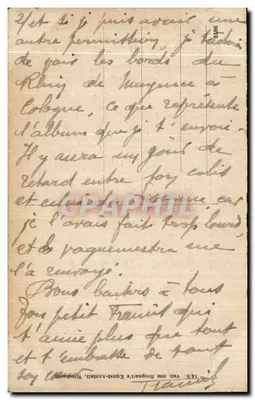 et si je puis avoir une
autre permission, je tacherai
de voir les bords du
Rhin de Mayence à
Cologne, ce que représente
l'album que je t'envoie.
Il y aura un jour de
retard entre ton colis
et car
je l'avais fait trop lourd,
et le vaguemestre me
l'a renvoyé.
Bons baisers à tous
Ton petit qui
t'aime plus que tout
et t'embrasse de tout
son cœur
CPAPHIL